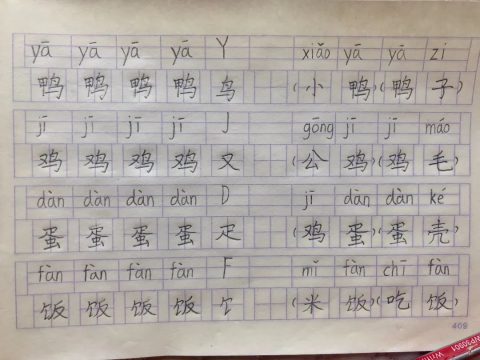 yā yā yā yā Y xiǎo yā yā zi
鸭 鸭 鸭 鸭 鸟 (小 鸭)(鸭 子)
jī jī jī jī J gōng jī jī máo
鸡 鸡 鸡 鸡 又 (公 鸡)(鸡 毛)
dàn dàn dàn dàn D jī dàn dàn ké
蛋 蛋 蛋 蛋 疋 (鸡 蛋)(蛋 壳)
fàn fàn fàn fàn F mǐ fàn chī fàn
饭 饭 饭 饭 饣 (米 饭)(吃 饭)
409